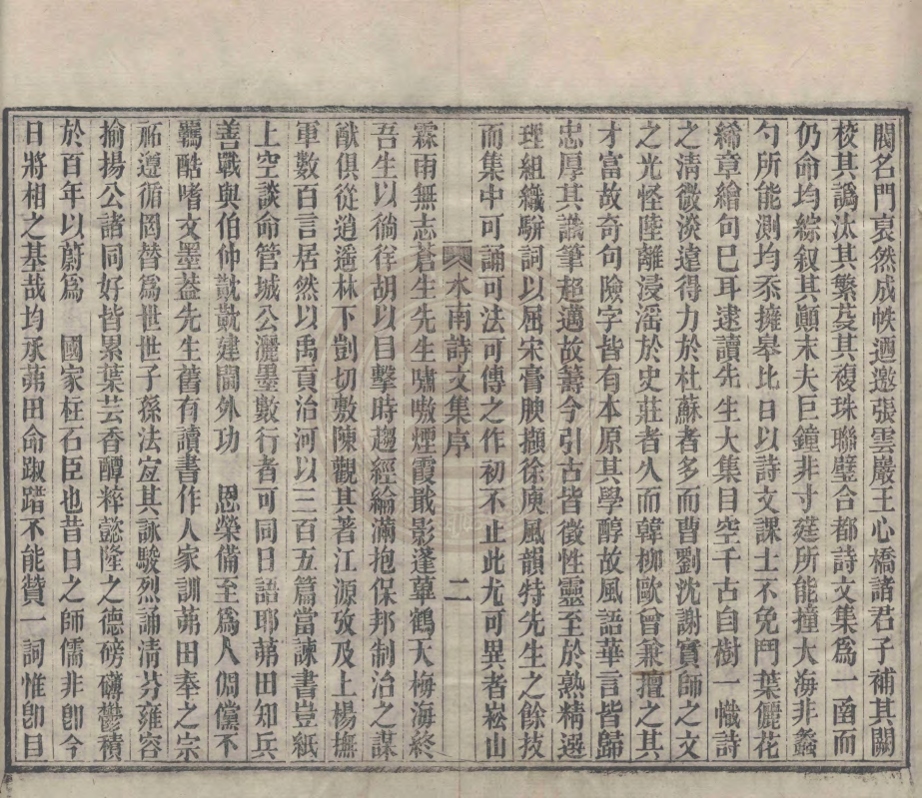 閥名門裒然成帙迺邀張雲巖王心橋諸君子補其闕
校其譌汰其繁芟其複珠聯璧合都詩文集爲一函而
仍命均綜叙其顛末夫巨鐘非寸莛所能撞大海非蠡
勺所能測均忝擁皋比日以詩文課士不免鬥葉儷花
絺章繪句已耳逮讀先生大集目空千古自樹一幟詩
之清微淡遠得力於杜蘇者多而曹劉沈謝實師之文
之光怪陸離浸滛於史莊者久而韓柳歐曾兼擅之其
才富故奇句險字皆有本原其學醇故風語華言皆歸
忠厚其識筆超邁故籌今引古皆徵性靈至於熟精選
理組織駢詞以屈宋膏腴擷徐庾風韻特先生之餘技
而集中可誦可法可傳之作初不止此尤可異者崧山
水南詩文集序 二
霖雨無志蒼生先生嘯嗷煙霞戢影蓬蓽鶴天梅海終
吾生以徜徉胡以目擊時趨經綸滿抱保邦制治之謀
猷俱從逍遥林下剴切敷陳觀其著江源攷及上楊撫
軍數百言居然以禹貢治河以三百五篇當諫書豈紙
上空談命管城公灑墨數行者可同日語耶茀田知兵
善戰與伯仲歎歎建閫外功 恩榮備至爲人倜儻不
羈酷嗜文墨葢先生舊有讀書作人家訓茀田奉之宗
祏遵循罔替爲世世子孫法宐其詠駿烈誦清芬雍容
揄揚公諸同好皆累葉芸香醰粹懿隆之德磅礴鬱積
於百年以蔚爲 國家柱石臣也昔日之師儒非卽今
日將相之基哉均承茀田命踧踖不能贊一詞惟卽目